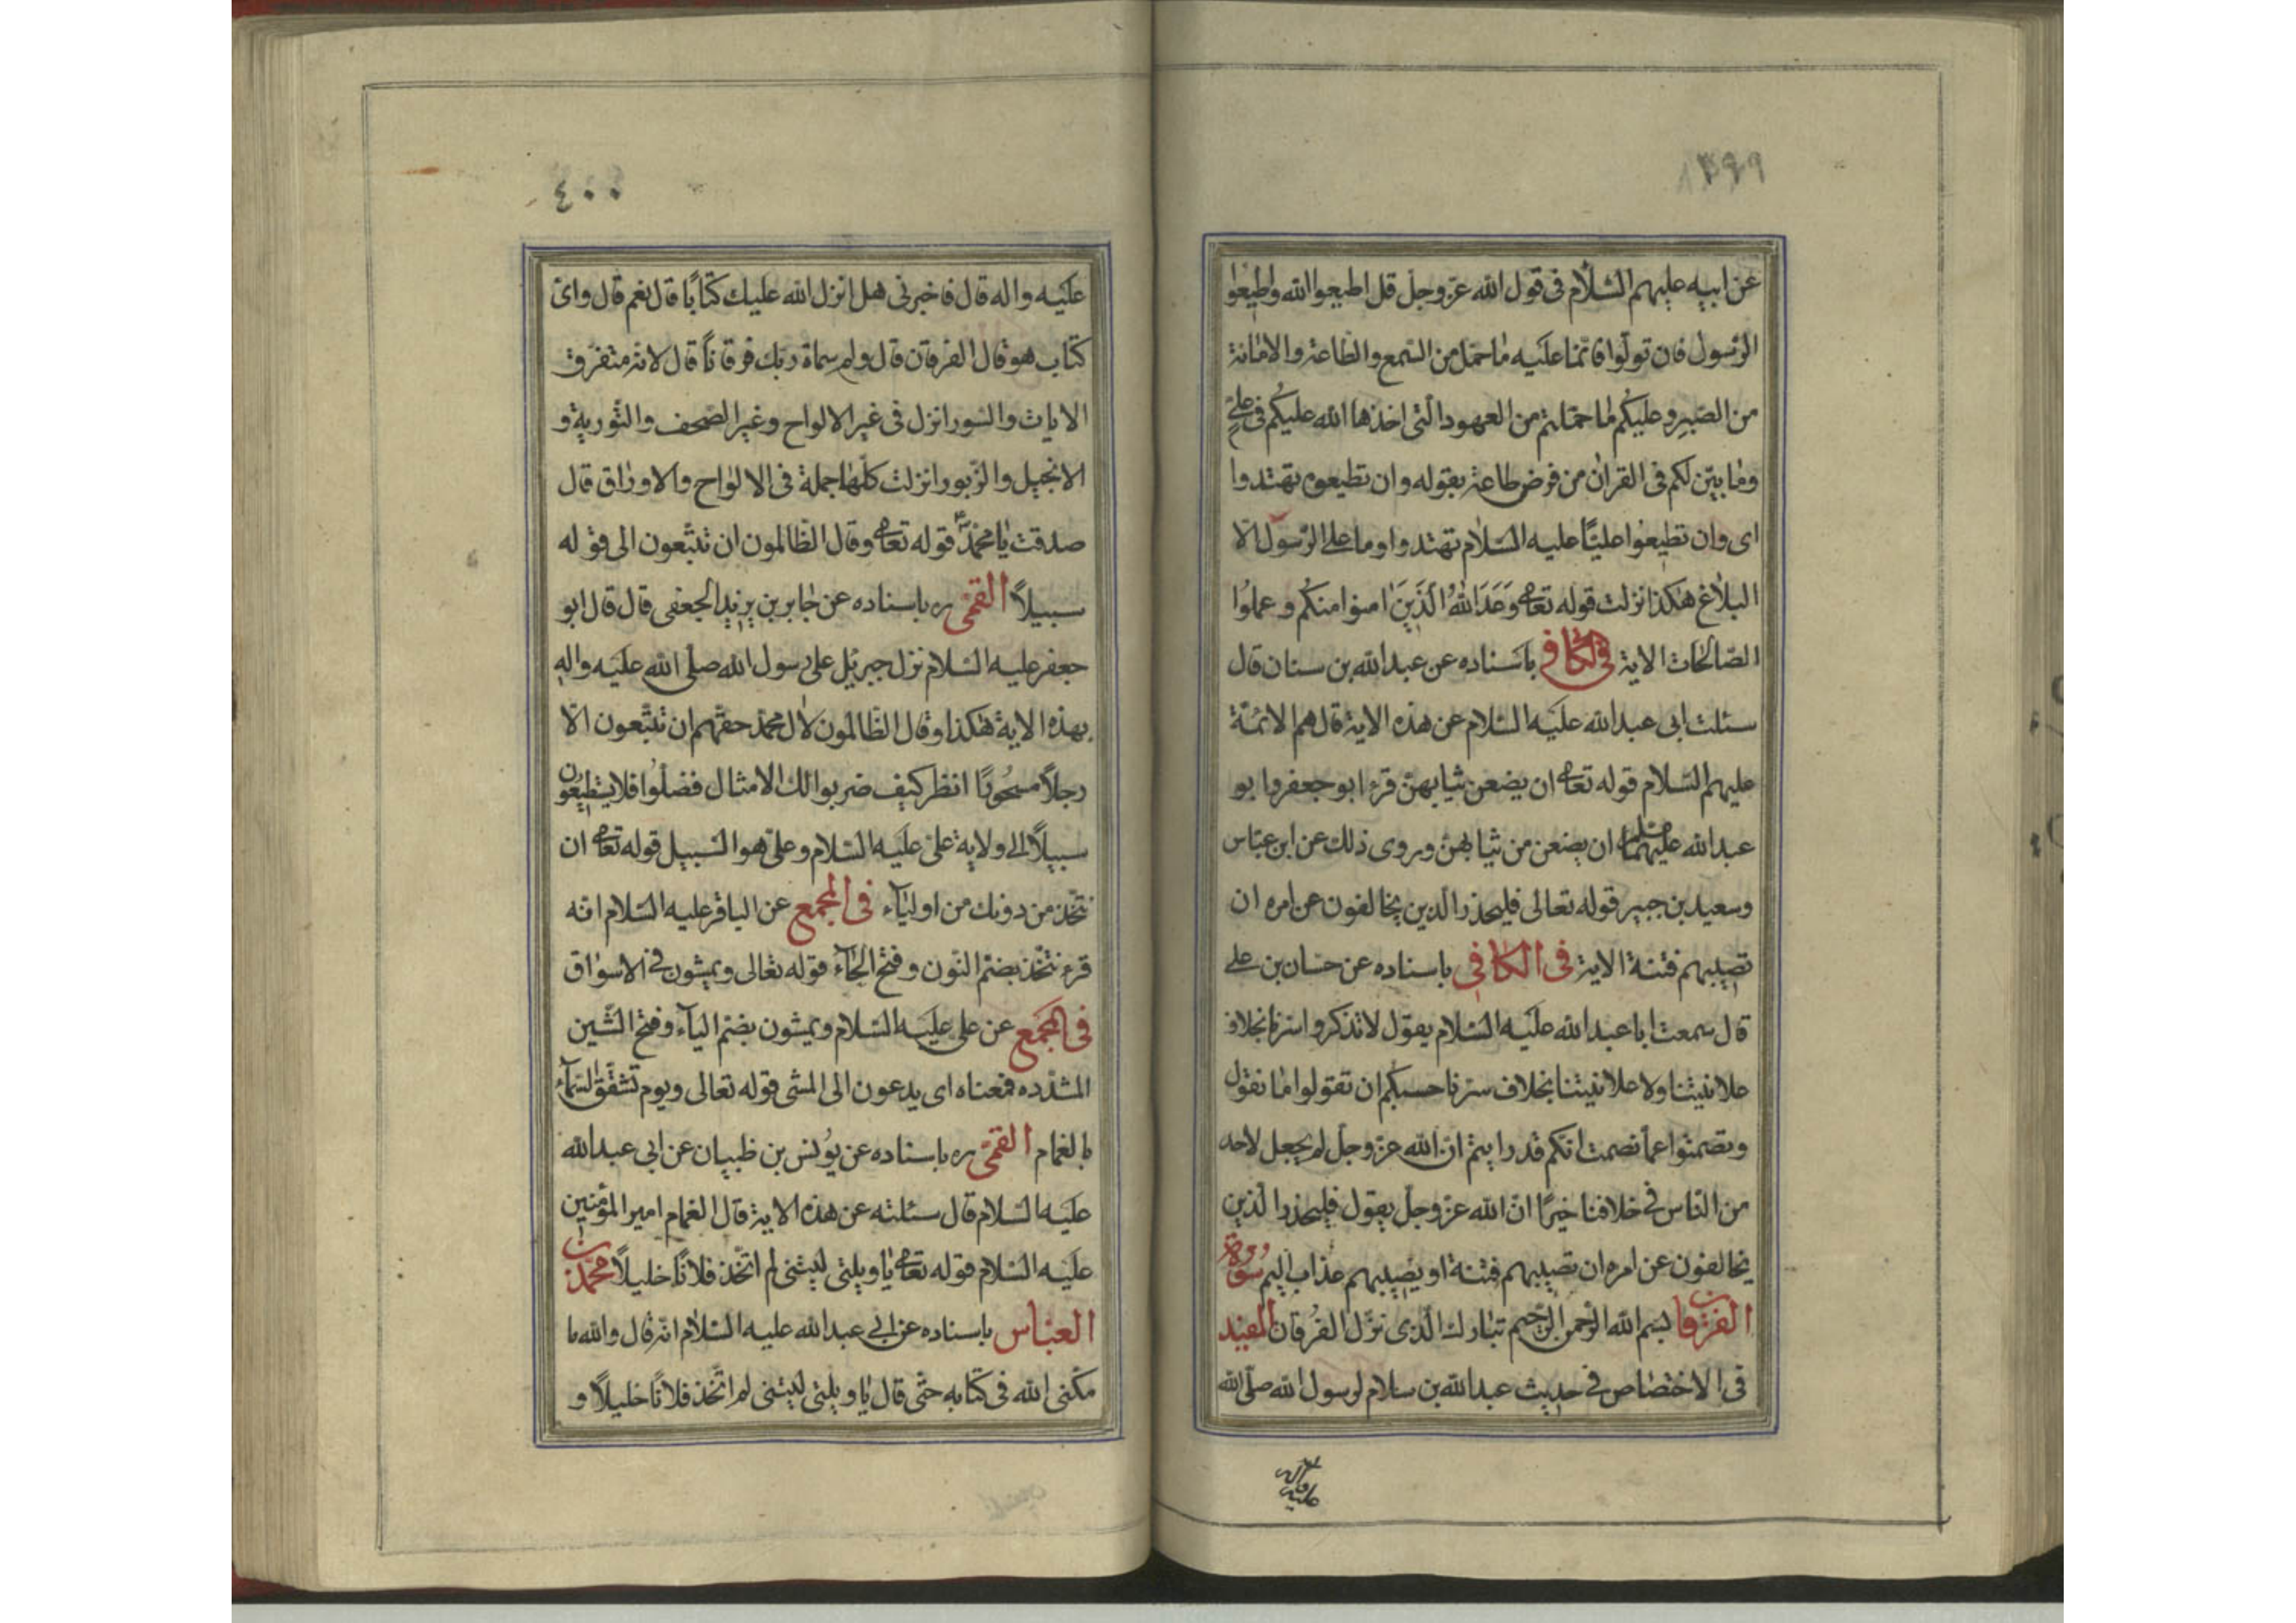 ٣٩٩
عن ابيه عليهم السّلام فى قول الله عزّ وجلّ قل اطيعوا الله واطيعوا
الرّسول فان تولّوا فانّما عليه ما حمّل من السّمع والطّاعة والامانة
من الصّبر وعليكم ما حمّلتم من العهود الّتى اخذها الله عليكم فى علىّ
وما بيّن لكم فى القران من فرض طاعته بقوله وان تطيعوه تهتدوا
اى وان تطيعوا عليّا عليه السّلام تهتدوا وما على الرّسول الّا
البلاغ هكذا نزلت قوله تعالى وَعَدَ اللهُ الَّذينَ امنوا منكُم وعملوُا
الصّالحات الاية فى الكافى باسناده عن عبدالله بن سنان قال
سئلت ابى عبدالله عليَه السّلام عن هذه الاية قال هم الائمّة
عليهم السّلام قوله تعالى ان يضعن ثيابهنّ قرء ابوجعفر وابو
عبدالله عليهما ان يضعن من ثيابهنّ وروى ذلك عن ابن عبّاس
وسعيد بن جبير قوله تعالى فليحذر الّذين يخالفون عن امره ان
تصيبهم فتنة الاية فى الكافى باسناده عن حسّان بن على
قال سمعت ابا عبدالله عليَه السّلام يقول لا تذكروا سرّنا بخلاف
علانيتنا ولا علانيتنا بخلاف سرّنا حسبكم ان تقولوا ما نقول
وتصمتوا عمّا نصمت انّكم قد رايتم انّ الله عزّ وجلّ لم يجعل لاحد
من النّاس فى خلافنا خيرًا انّ الله عزّ وجلّ يقول فليحذر الّذين
يخالفون عن امره ان تصيبهم فتنة او يصيبهم عذاب اليم سورة
الفرقان بسم الله الرّحمن الرّحيم تبارك الّذى نزّل الفُرقان المفيد
فى الاختصاص فى حديث عبدالله بن سلام لرسول الله صلّى الله
عليه واله
٤٠٠
عليَه واله قال فاخبرنى هل انزل الله عليك كتابًا قال نعم قال واىّ
كتاب هو قال الفرقان قال ولم سماة ربّك فرقانًا قال لانّه متفرّق
الايات والسّور انزل فى غير الالواح وغير الصّحف والتّورية و
الانجيل والزّبور انزلت كلّها جملة فى الالواح والاوراق قال
صدقت يا محمّد قوله تعالى وقال الظّالمون ان تتّبعون الى قوله
سبيلاً القمّى ره باسناده عن جابر بن يزيد الجعفى قال قال ابو
جعفر عليه السّلام نزل جبرئيل على رسول الله صلّى الله عليَه واله
بهذه الاية هكذا وقال الظّالمون لال محمّد حقّهم ان تتّبعون الّا
رجلاً مسحُورًا انظر كيف ضربوا لك الامثال فضلّوُا فلا يستطيعُون
سبيلاً الى ولاية علىّ عليَه السّلام وعلىّ هو السّبيل قوله تعالى ان
نتّخذ من دونك من اولياۤء فى المجمع عن الباقر عليه السّلام انّه
قرء نتّخذ بضمّ النّون وفتح الخاۤء قوله تعالى ويمشون فى الاسواق
فى المجمع عن على عليَه السّلام ويمشّون بضمّ الياۤء وفتح الشّين
المشدّده فمعناه اى يدعون الى المشى قوله تعالى ويوم تشقّق السّماۤء
بالغمام القمّى ره باسناده عن يوُنس بن ظبيان عن ابى عبدالله
عليَه السّلام قال سئلته عن هذه الاية قال الغمام امير المؤمنين
عليَه السّلام قوله تعالى يا ويلتى ليتنى لم اتّخذ فلانًا خليلاً محمّد بن
العبّاس باسناده عن ابى عبدالله عليه السّلام انّه قال والله ما
مكّنى الله فى كتابه حتّى قال يا ويلتى ليتنى لم اتّخذ فلانًا خليلاً و